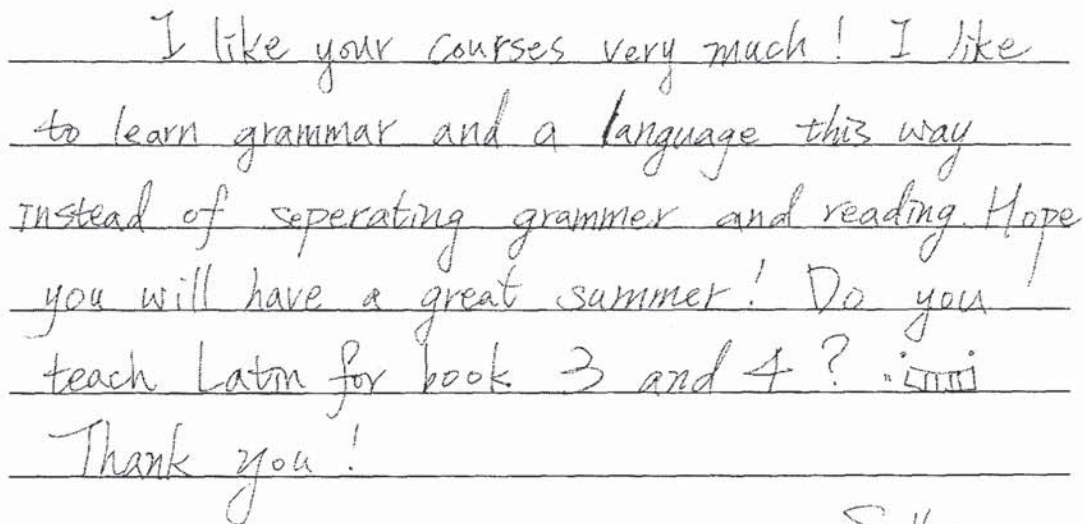 I like your courses very much! I like
to learn grammar and a language this way
instead of seperating grammer and reading. Hope
you will have a great summer! Do you
teach Latin for book 3 and 4?
Thank you!